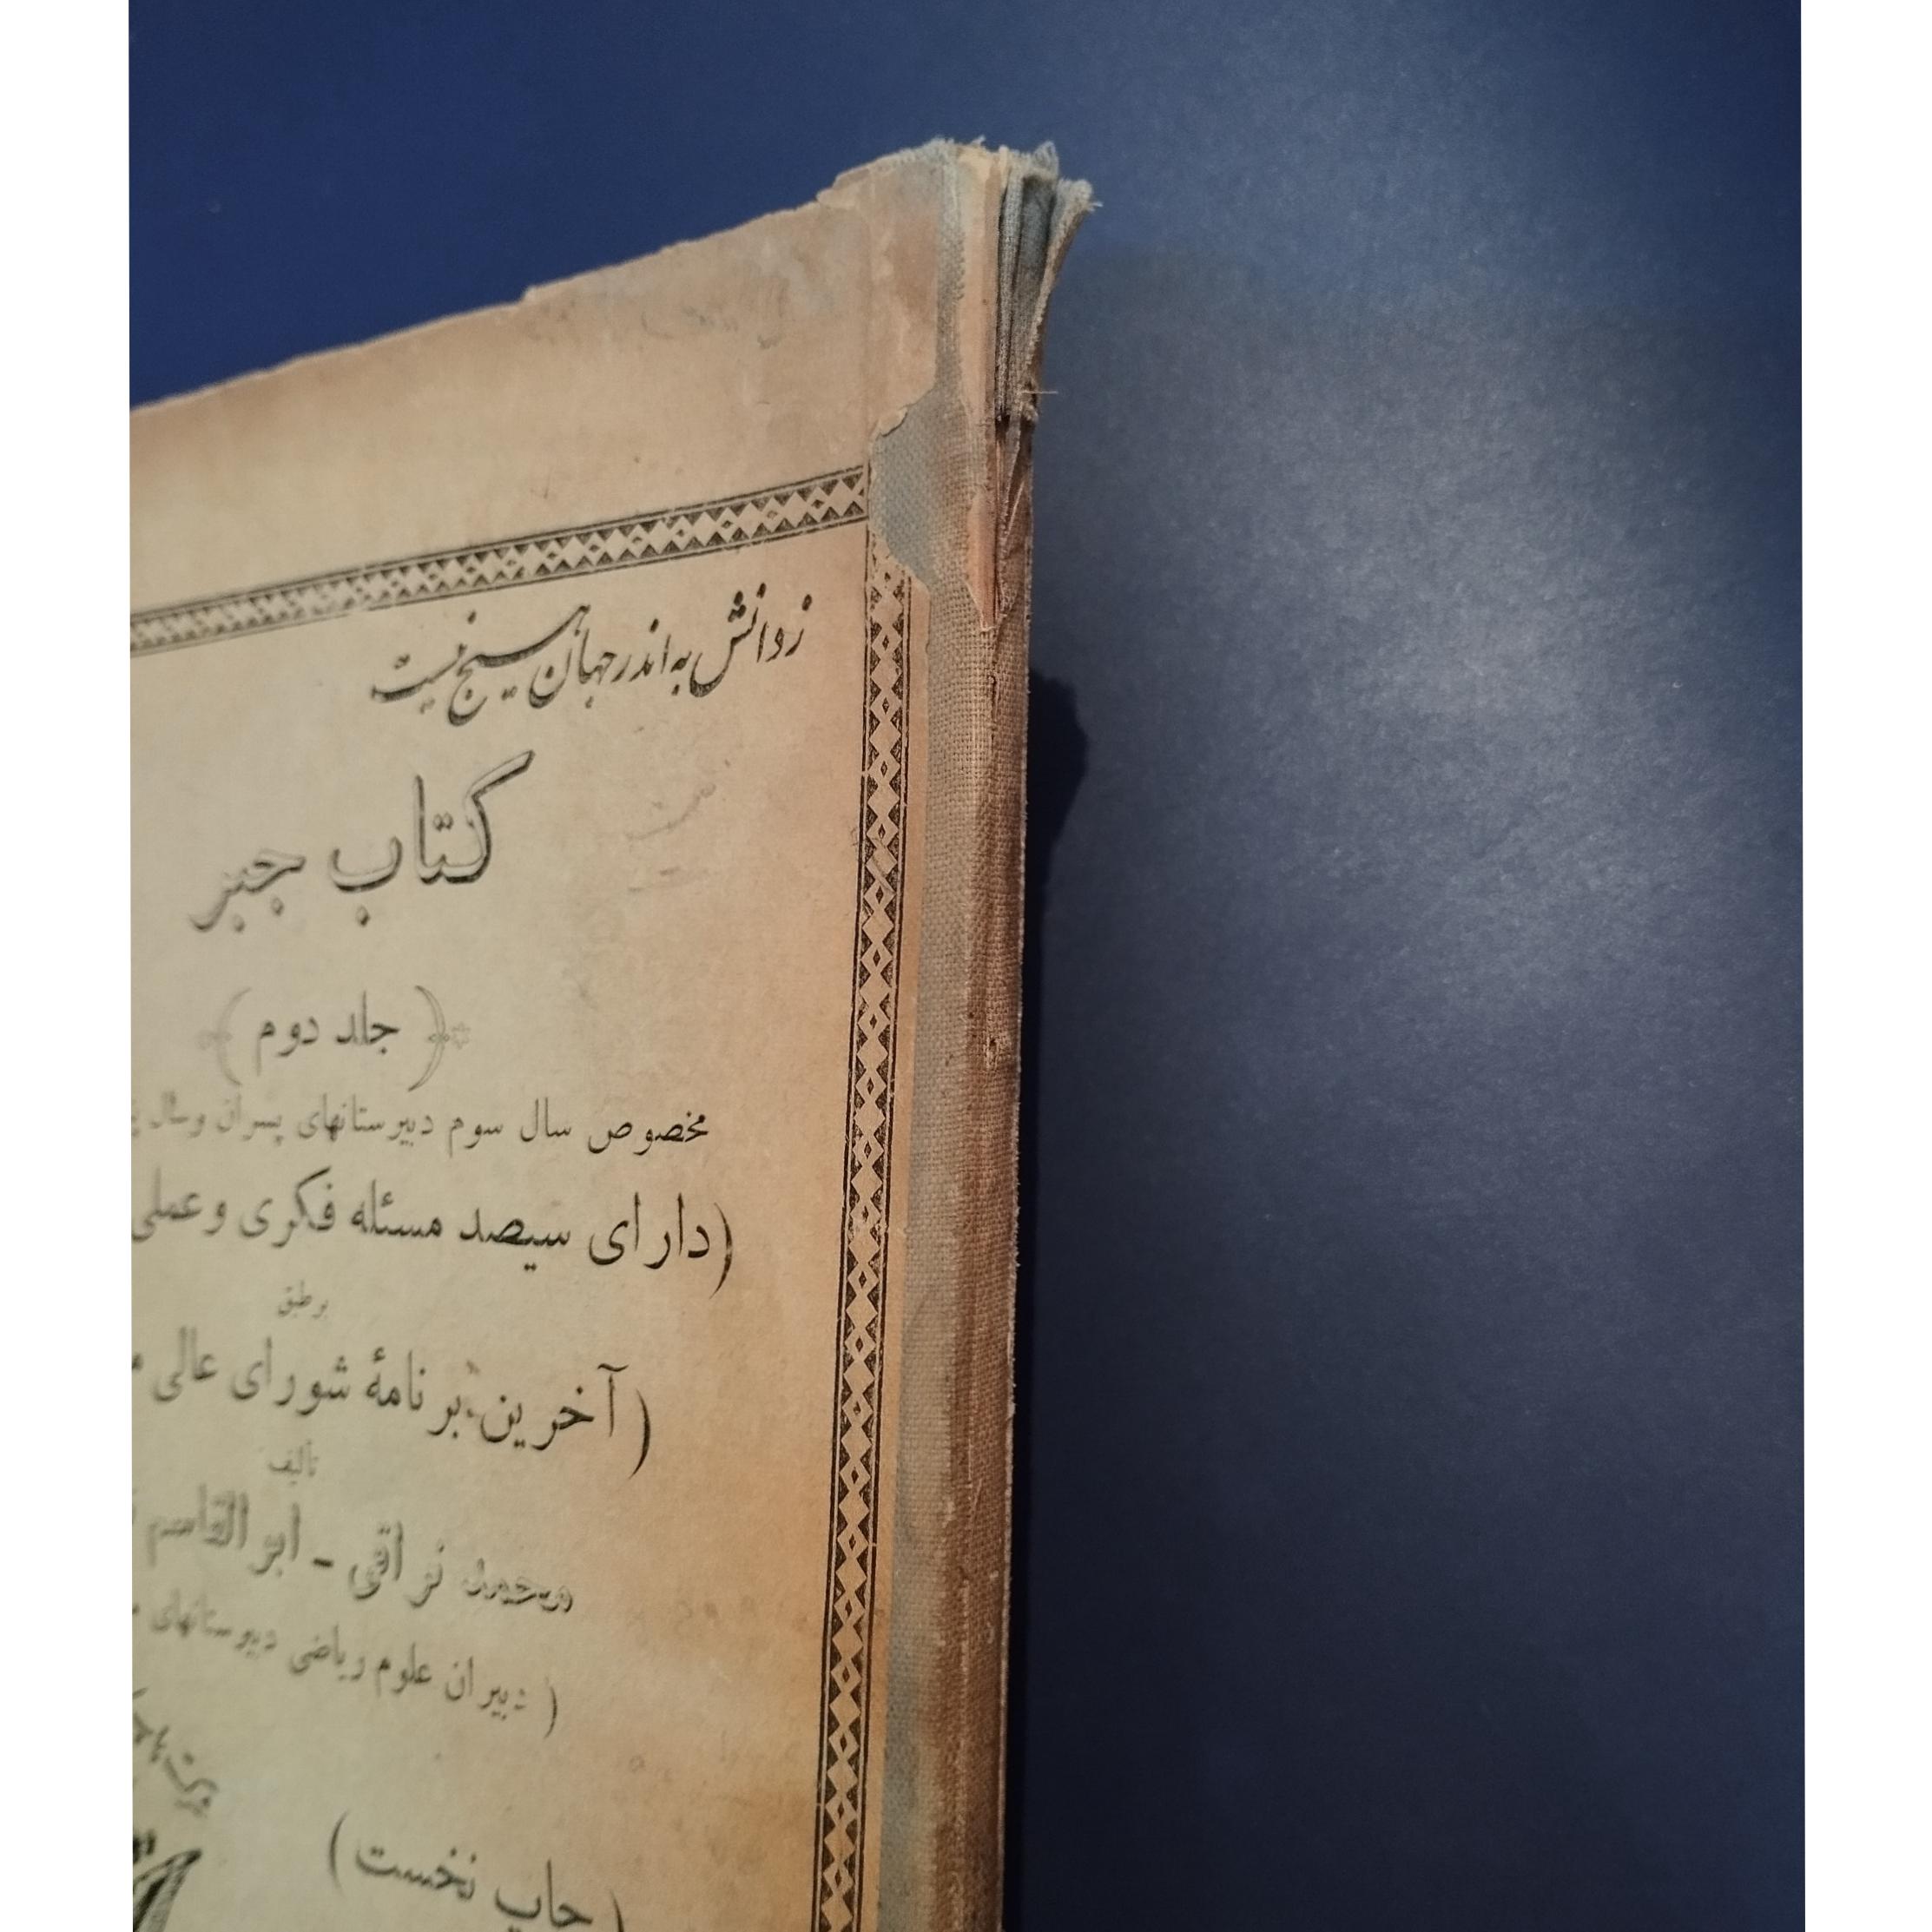 زدانش به اندر جهان هیچ نیست
کتاب جبر
(جلد دوم)
مخصوص سال سوم دبیرستانهای پسران وسال
(دارای سیصد مسئله فکری و عملی
بر طبق
(آخرین برنامهٔ شورای عالی
تألیف
محمد نراقی - ابوالقاسم
(دبیران علوم ریاضی دبیرستانهای
شرکت
(چاپ نخست)